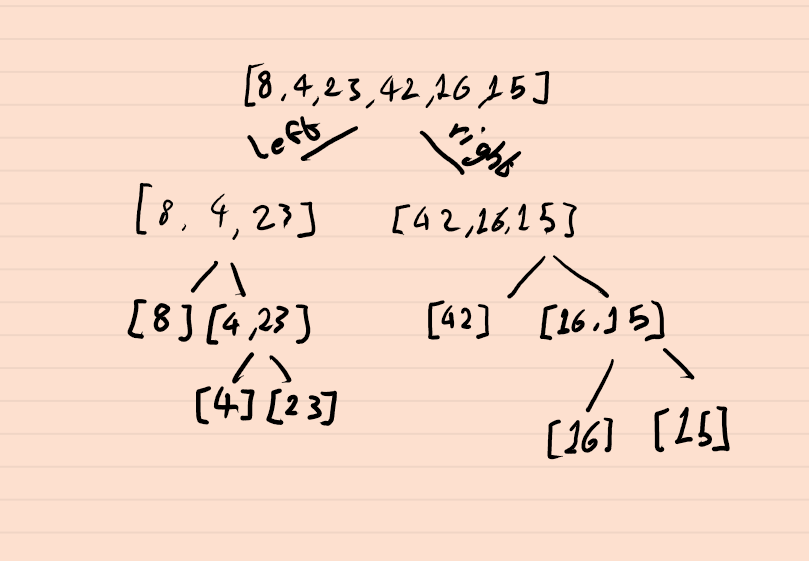 [8,4,23,42,16,15]
left right
[8, 4, 23] [42,16,15]
[8] [4,23] [42] [16,15]
[4] [23] [16] [15]